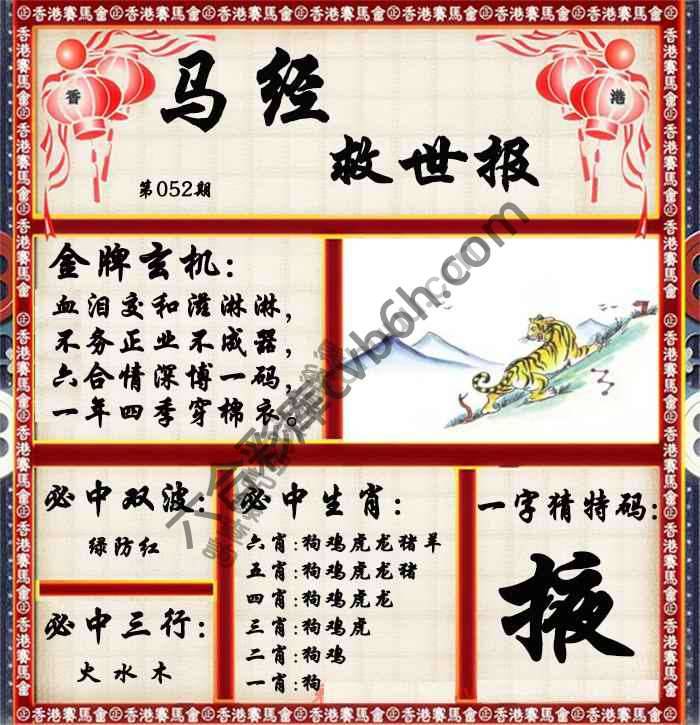 香港賽馬會
香
港
马经
救世报
第052期
金牌玄机：
血泪交和滋淋淋，
不务正业不成器，
六合情深博一码，
一年四季穿棉衣。
必中双波：
绿防红
必中三行：
火水木
必中生肖：
六肖:狗鸡虎龙猪羊
五肖:狗鸡虎龙猪
四肖:狗鸡虎龙
三肖:狗鸡虎
二肖:狗鸡
一肖:狗
一字猜特码：
掖
六合彩库cvb6h.com